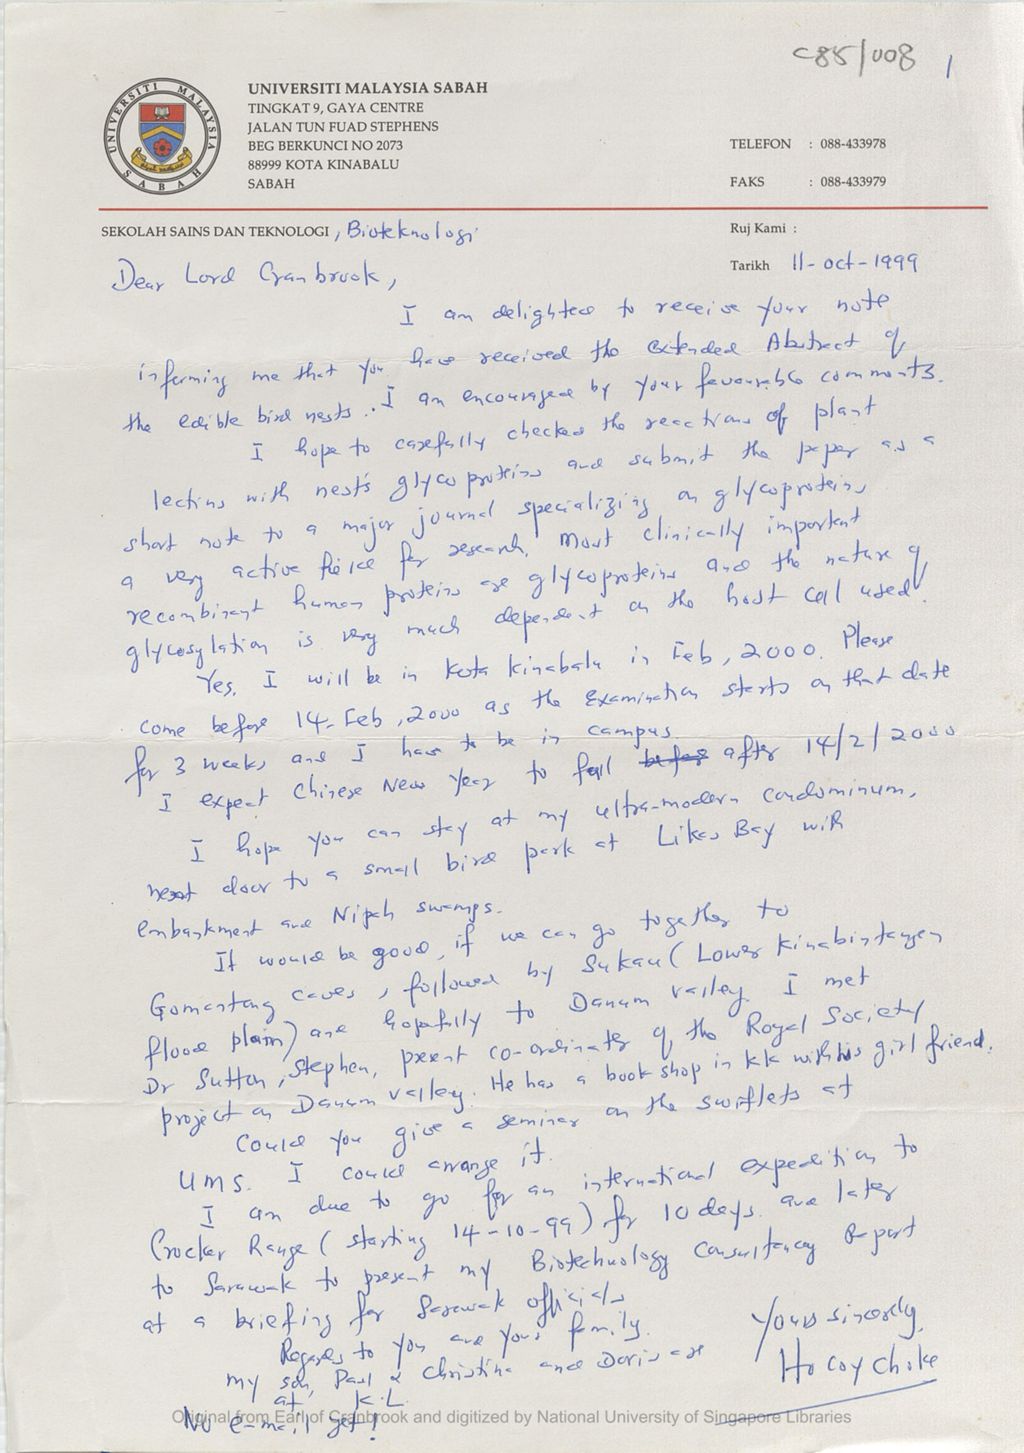 C85/008 1
UNIVERSITI MALAYSIA SABAH
UNIVERSITI MALAYSIA SABAH
TINGKAT 9, GAYA CENTRE
JALAN TUN FUAD STEPHENS
BEG BERKUNCI NO 2073
88999 KOTA KINABALU
SABAH
TELEFON : 088-433978
FAKS : 088-433979
SEKOLAH SAINS DAN TEKNOLOGI, Bioteknologi
Ruj Kami :
Tarikh 11-oct-1999
Dear Lord Cranbrook,
I am delighted to receive your note
informing me that you have received the extended Abstract of
the edible bird nests. I am encouraged by your favourable comments.
I hope to carefully checked the reactions of plant
lectins with nest's glycoproteins and submit the paper as a
short note to a major journal specializing on glycoproteins,
a very active field for research. Most clinically important
recombinant human proteins are glycoproteins and the nature of
glycosylation is very much dependent on the host cell used.
Yes, I will be in Kota Kinabalu in Feb, 2000. Please
come before 14-Feb, 2000 as the Examination starts on that date
for 3 weeks and I have to be in campus.
I expect Chinese New Year to fall before after 14/2/2000
I hope you can stay at my ultra-modern condominium,
next door to a small bird park at Likas Bay with
embankment and Nipah swamps.
It would be good, if we can go together to
Gomantong caves, followed by Sukau (Lower Kinabintangen
flood plain) and hopefully to Danum valley. I met
Dr Sutton, Stephen, present co-ordinator of the Royal Society
project on Danum valley. He has a book shop in KK with his girl friend.
Could you give a seminar on the swiflets at
UMS. I could arrange it.
I am due to go for an international expedition to
Crocker Range (starting 14-10-99) for 10 days and later
to Sarawak to present my Biotechnology Consultancy Report
at a briefing for Sarawak officials
Regards to you and your family.
my son, Paul & Christina and Doris are
at K.L.
No e-mail yet!
Yours sincerely,
Ho Coy Choke
Original from Earl of Cranbrook and digitized by National University of Singapore Libraries